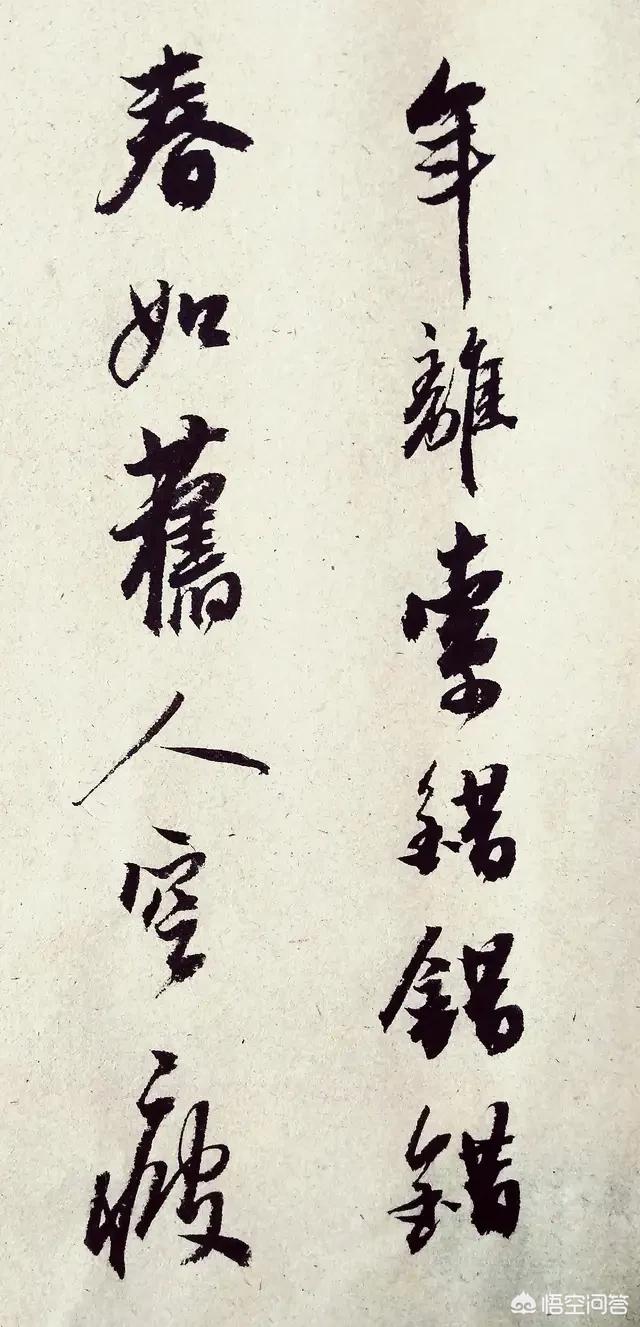 年離索錯錯錯
春如舊人空瘦
悟空问答